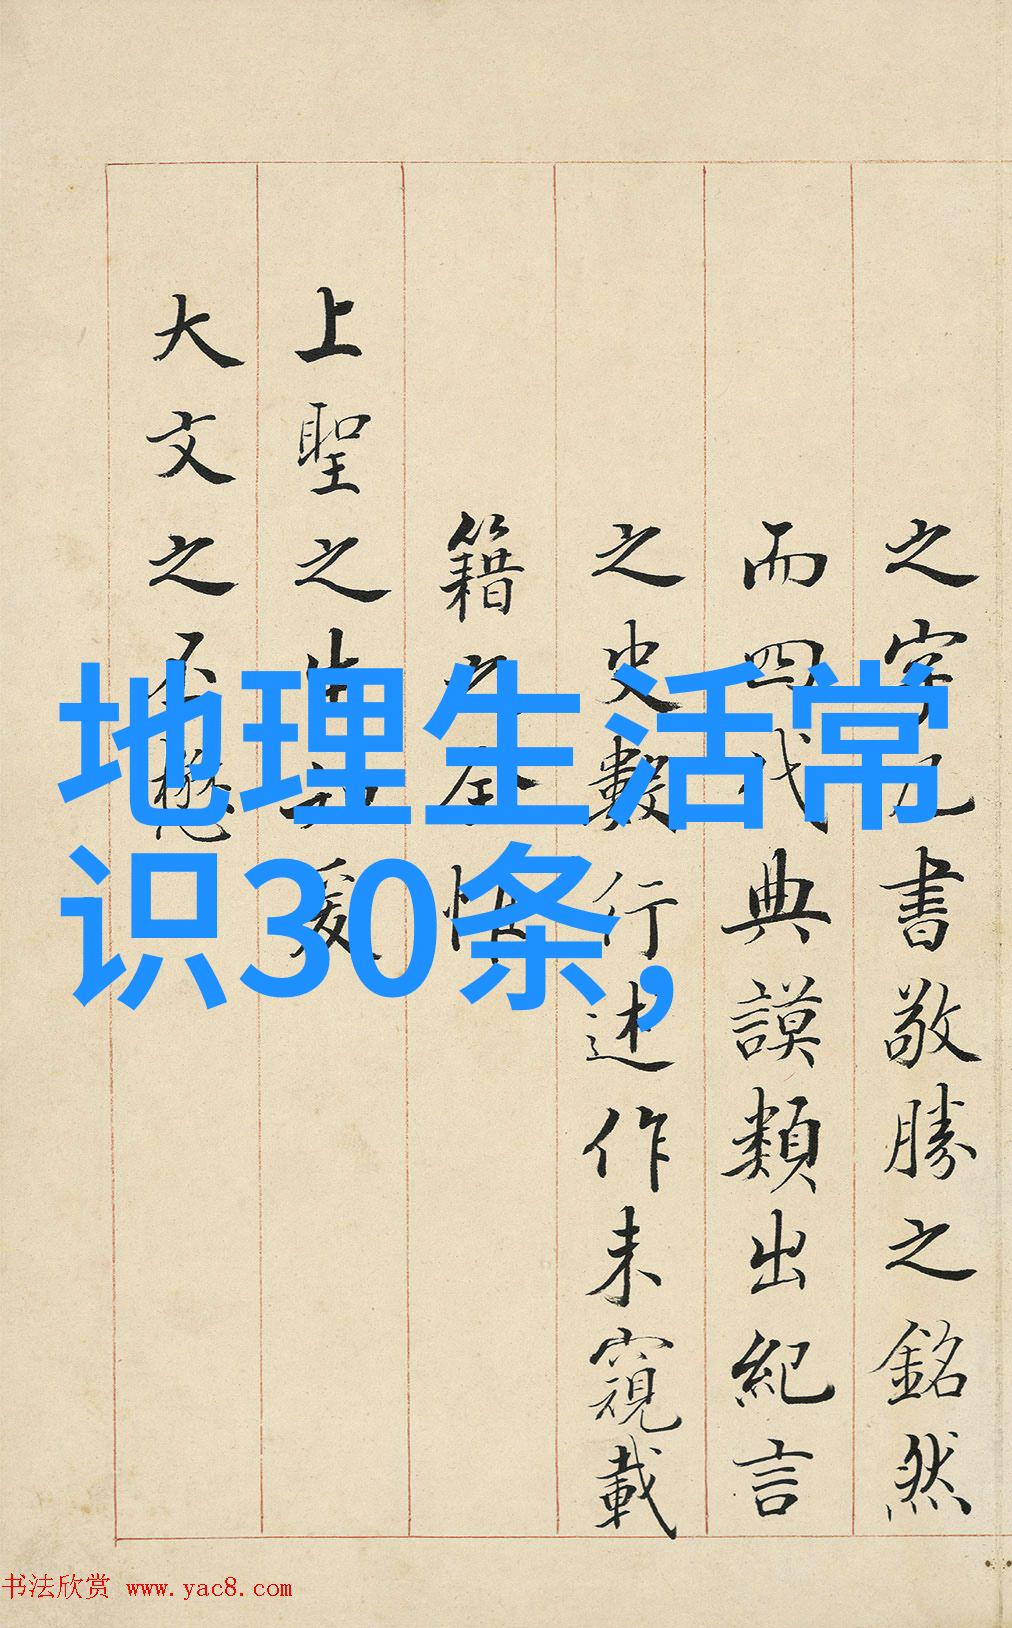 之字之書敬勝之銘然
而四代典謨類出紀言
之史數行述作未窺載
籍之全惟
上聖之生知爰
大文之丕懋
地理生活常
识30条,
书法欣赏 www.yac8.com